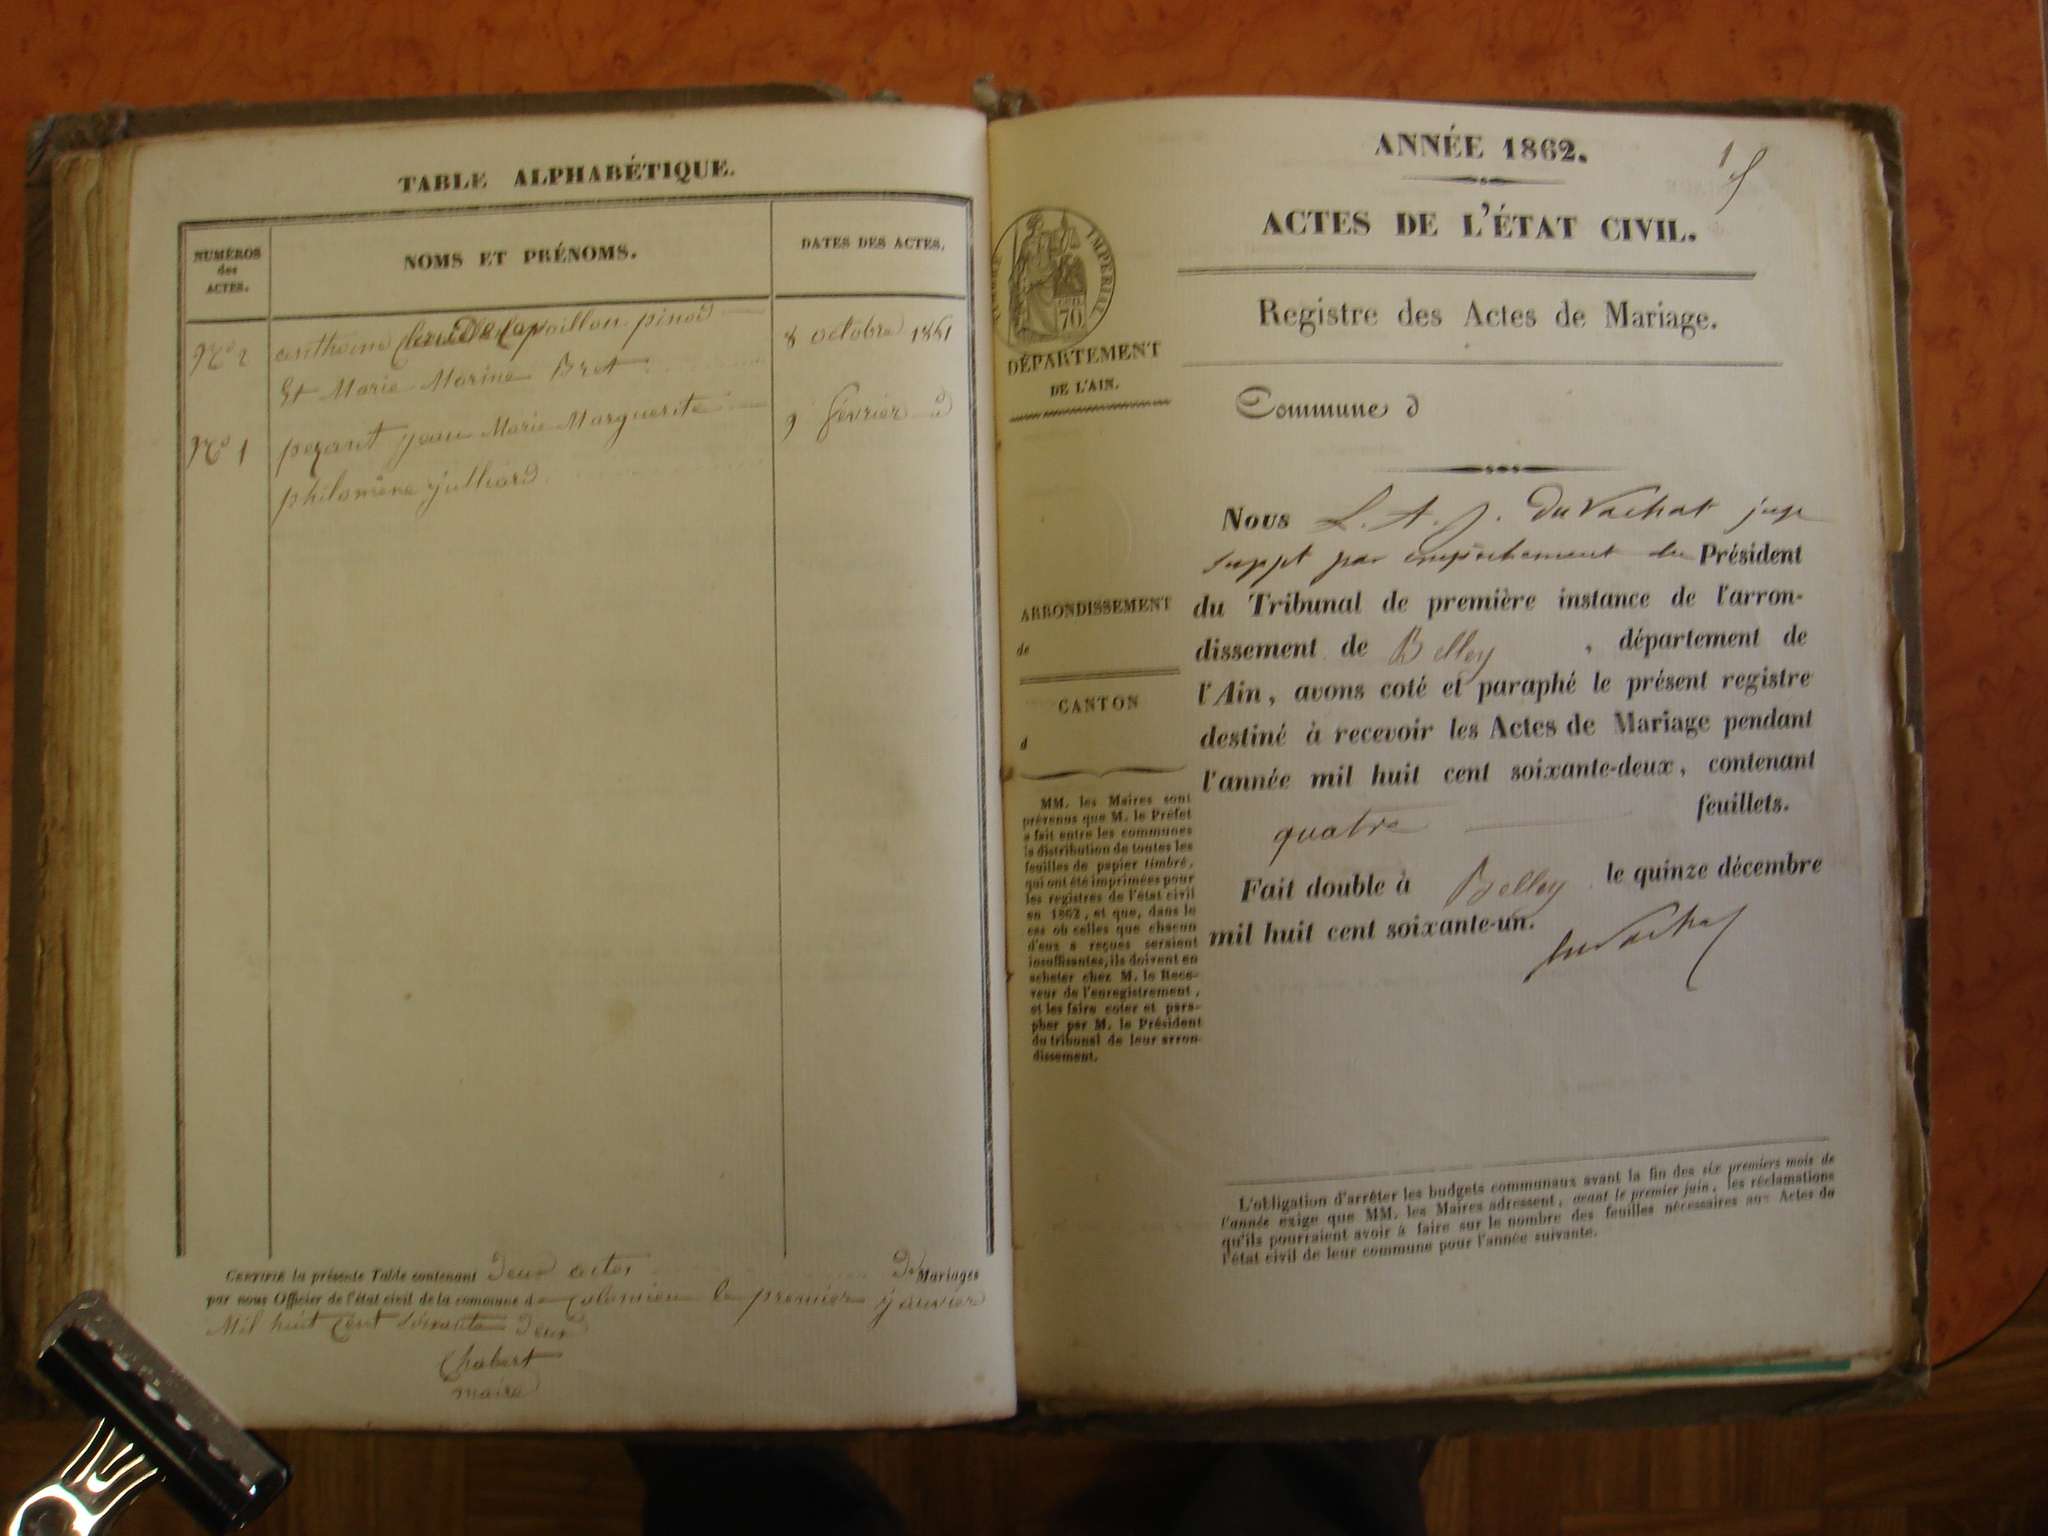 TABLE ALPHABÉTIQUE.
NUMÉROS
des
ACTES.
NOMS ET PRÉNOMS.
DATES DES ACTES.
No 2
pinod
8 octobre 1861
Et Marie Marine Bret
No 1
pezant jean Marie Marguerite
9 février d
philomène julliard
CERTIFIÉ la présente Table contenant deux actes de Mariages
par nous Officier de l'état civil de la commune d Colomieu le premier janvier
Mil huit Cent Soixante deux
Chabert
maire
ANNÉE 1862.
1
ACTES DE L'ÉTAT CIVIL.
TIMBRE IMPÉRIAL
CEN.
70
Registre des Actes de Mariage.
DÉPARTEMENT
DE L'AIN.
Commune d
Nous L. A. J. DuVachat juge
suppt par empêchement du Président
du Tribunal de première instance de l'arron-
dissement de Belley, département de
l'Ain, avons coté et paraphé le présent registre
destiné à recevoir les Actes de Mariage pendant
l'année mil huit cent soixante-deux, contenant
quatre feuillets.
Fait double à Belley le quinze décembre
mil huit cent soixante-un.
DuVachat
ARRONDISSEMENT
de
CANTON
d
MM. les Maires sont
prévenus que M. le Préfet
a fait entre les communes
la distribution de toutes les
feuilles de papier timbré,
qui ont été imprimées pour
les registres de l'état civil
en 1862, et que, dans le
cas où celles que chacun
d'eux a reçues seraient
insuffisantes, ils doivent en
acheter chez M. le Rece-
veur de l'enregistrement,
et les faire coter et para-
pher par M. le Président
du tribunal de leur arron-
dissement.
L'obligation d'arrêter les budgets communaux avant la fin des six premiers mois de
l'année exige que MM. les Maires adressent, avant le premier juin, les réclamations
qu'ils pourraient avoir à faire sur le nombre des feuilles nécessaires aux Actes de
l'état civil de leur commune pour l'année suivante.